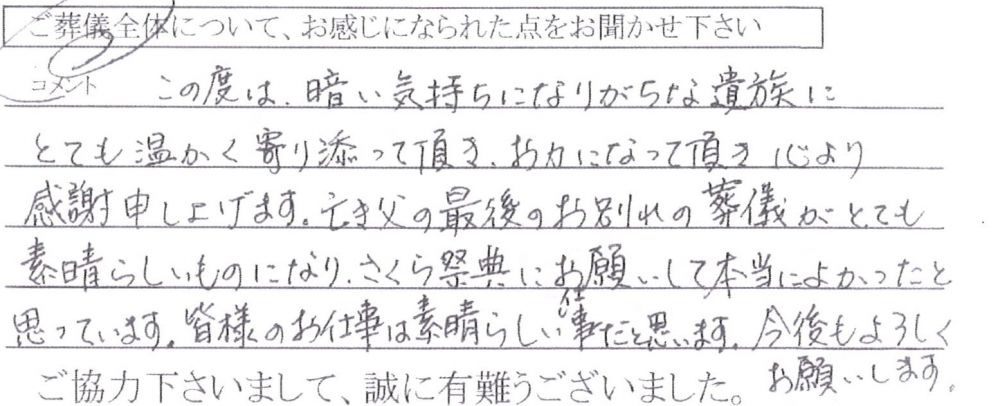 ご葬儀全体について、お感じになられた点をお聞かせ下さい
コメント この度は、暗い気持ちになりがちな遺族に
とても温かく寄り添って頂き、お力になって頂き心より
感謝申し上げます。亡き父の最後のお別れの葬儀がとても
素晴らしいものになり、さくら祭典にお願いして本当によかったと
思っています。皆様のお仕事は素晴らしい仕事だと思います。今後もよろしく
お願いします。
ご協力下さいまして、誠に有難うございました。